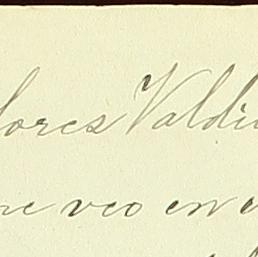 lores Valdi
re veo en e